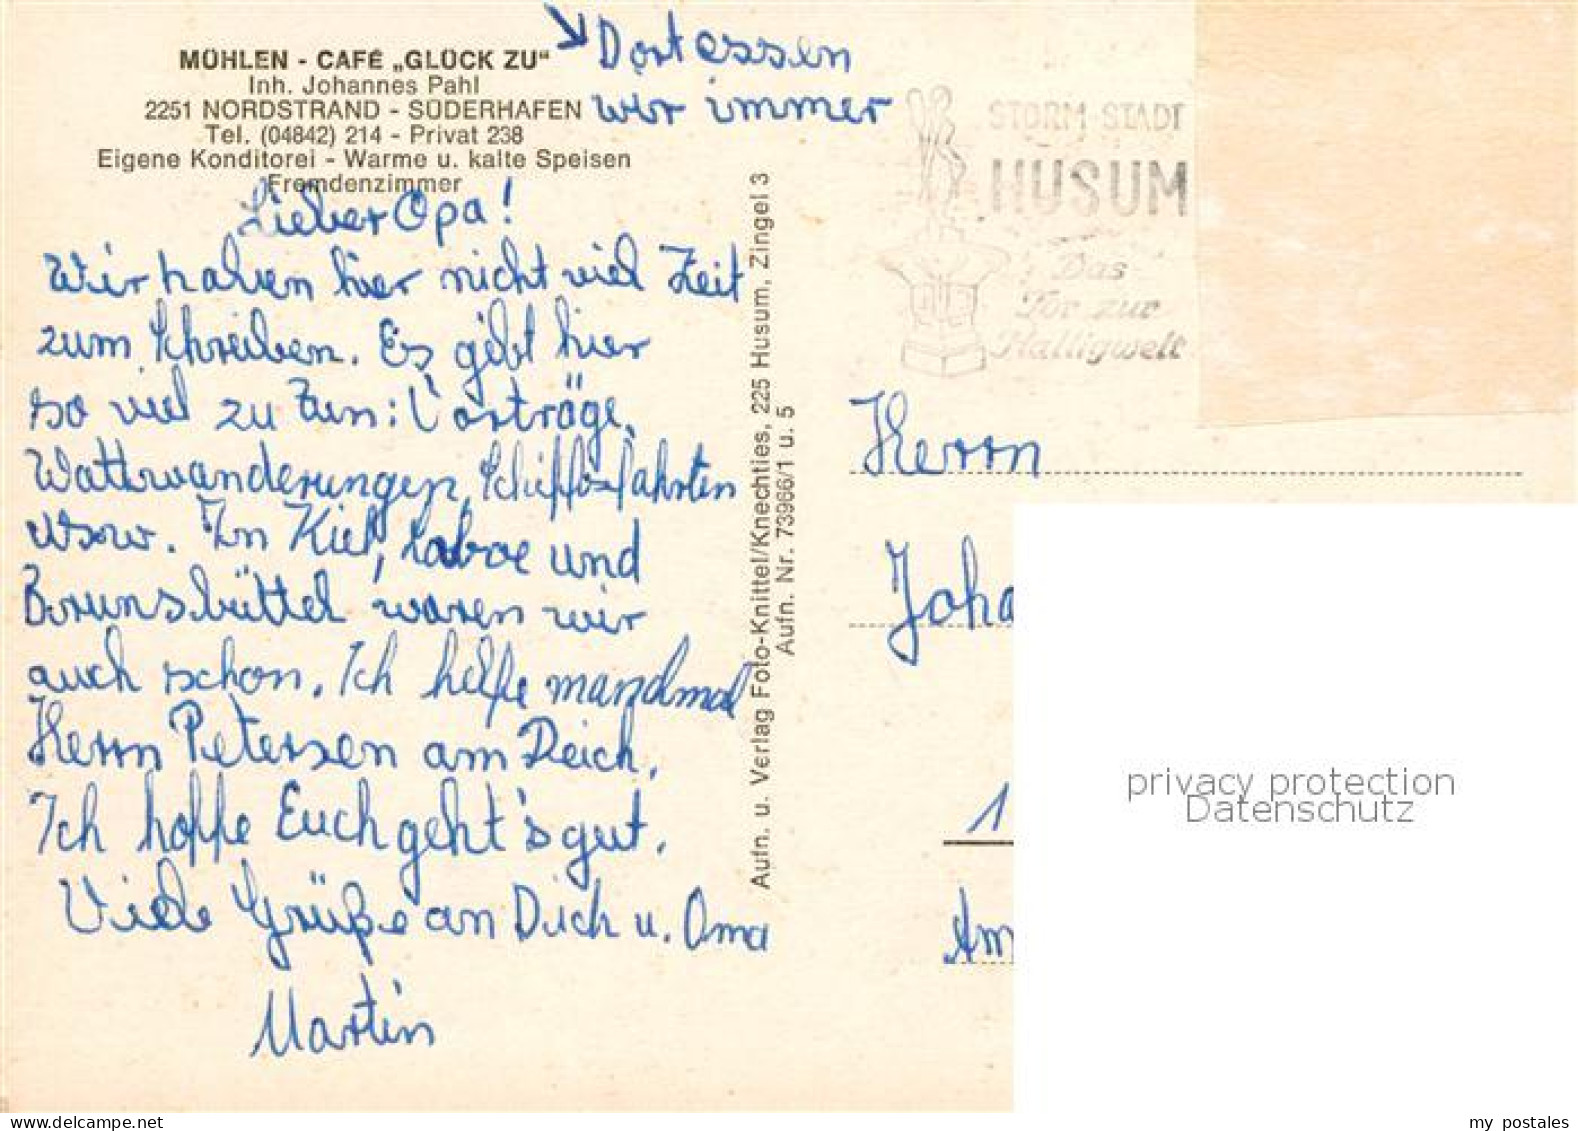 MÜHLEN - CAFÉ „GLÜCK ZU“
Inh. Johannes Pahl
2251 NORDSTRAND - SÜDERHAFEN
Tel. (04842) 214 - Privat 238
Eigene Konditorei - Warme u. kalte Speisen
Fremdenzimmer
Dort essen
wir immer
Lieber Opa!
Wir haben hier nicht viel Zeit
zum Schreiben. Es gibt hier
so viel zu tun: Vorträge,
Wattwanderungen, Schiffsfahrten
usw. In Kiel, Laboe und
Brunsbüttel waren wir
auch schon. Ich helfe manchmal
Herrn Petersen am Deich.
Ich hoffe Euch geht's gut.
Viele Grüße an Dich u. Oma
Martin
Aufn. u. Verlag Foto-Knittel/Knechties, 225 Husum, Zingel 3
Aufn. Nr. 73966/1 u. 5
STORM-STADT
HUSUM
Das
Tor zur
Halligwelt
Herrn
Joha
1
Am
privacy protection
Datenschutz
delcampe.net
my_postales